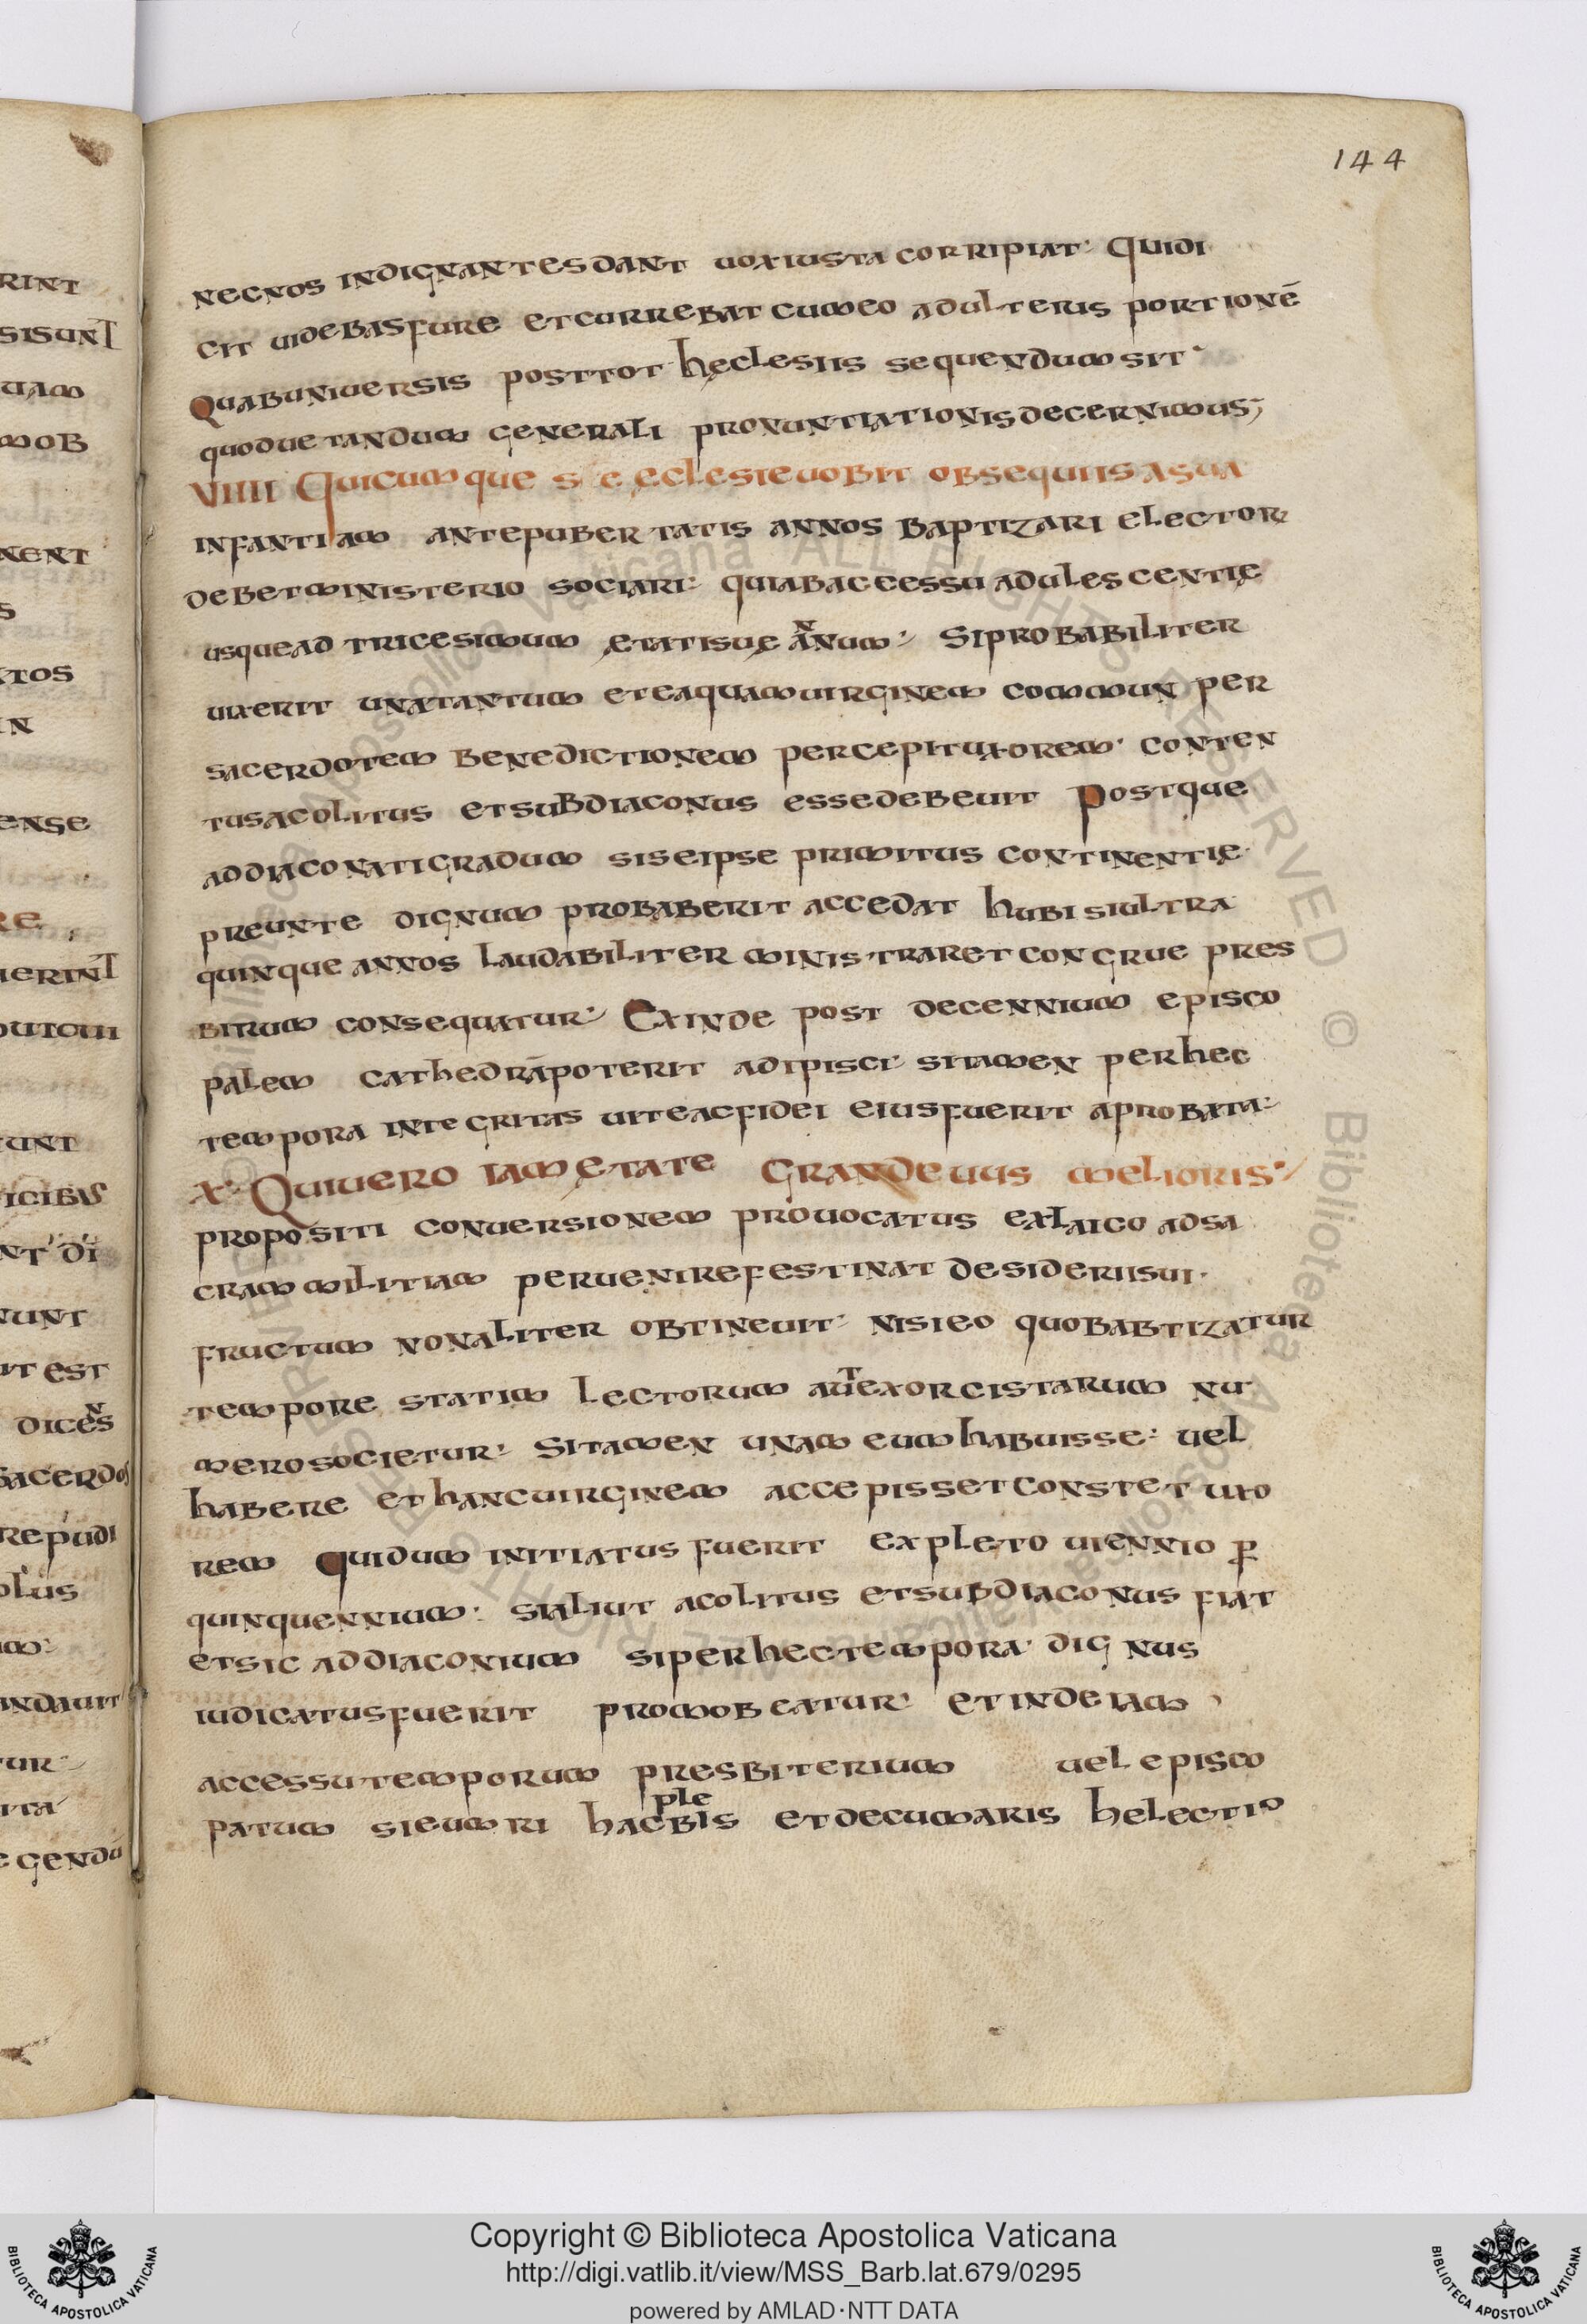 144
necnos indignantes dant uox iusta corripiat· Quidi
cit uidebas fure et currebat cum eo adulteris portionē
Quabuniuersis posttot heclesiis sequendum sit·
quod uetandum generali pronuntiationis decernimus;
VIIII Quicumque se ęclesie uobit obsequiis a sua
infantiam ante pubertatis annos baptizari elector
debet ministerio sociari· quiab accessu adulescentię
usque ad tricesimum ętatis suę anum· Si probabiliter
uixerit unatantum et ea quam uirginem commun per
sacerdotem benedictionem percepit uxorem· conten
tus acolitus et subdiaconus esse debeuit Postque
ad diaconati gradum si seipse primitus continentię
preunte dignum probaberit accedat hubi si ultra
quinque annos laudabiliter ministraret congrue pres
bitrum consequatur· Exinde post decennium episco
palem cathedrāpoterit adipisci si tamen per hec
tempora integritas uite ac fidei eius fuerit aprobata·
X· Qui uero iam ętate grandeuus melioris·
propositi conuersionem prouocatus ex laico ad sa
cram militiam peruenire festinat desiderii sui·
fructum non aliter obtineuit· nisi eo quo babtizatur
tempore statim lectorum aut exorcistarum nu
mero societur· Si tamen unam eum habuisse· uel
habere et hanc uirginem accepisset constet uxo
rem Qui dum initiatus fuerit expleto uiennio ꝑ
quinquennium· si aliut acolitus et subdiaconus fiat
et sic ad diaconium si per hec tempora· dignus
iudicatus fuerit promobeatur· et inde iam
accessu temporum presbiterium uel episco
patum si eum ri hac plebis et decumaris helectio
RINT
SISUNT
UAM
MOB
NENT
S
XTOS
IN
ENSE
RE
UERINT
DUTCUI
UNT
ICIBUS
NT DI
NUNT
UT EST
DICENS
SACERDOS
REPUDI
OLUS
UM·
INDAUIT
TUR·
ITA
GENDU
Copyright © Biblioteca Apostolica Vaticana
http://digi.vatlib.it/view/MSS_Barb.lat.679/0295
powered by AMLAD·NTT DATA
BIBLIOTECA APOSTOLICA VATICANA
BIBLIOTECA APOSTOLICA VATICANA